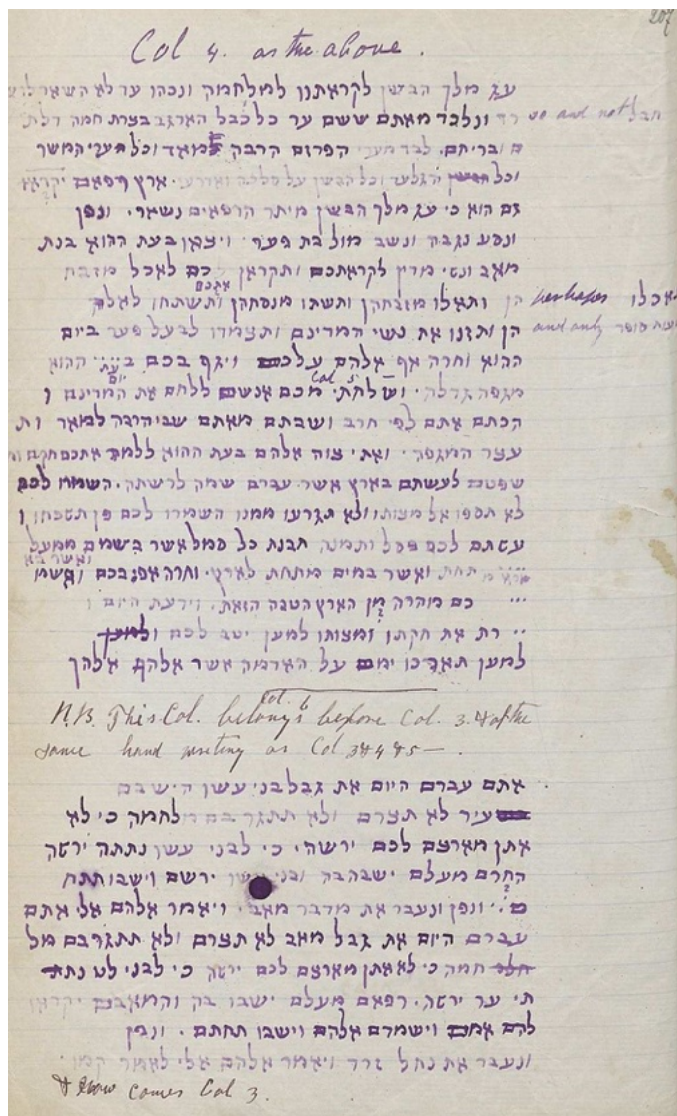 207
Col 4. as the above.
עג מלך הבשן לקראתנו למלחמה ונכהו עד לא השאר לו
רד ונלכד מאתם ששם ער כל חבל הארגב בצרת חמה דלת so and not חבל
ם ובריחם. לבד מערי הפרזם הרבה מאד וכל ערי המשר
וכל הגלעד וכל הבשן על סלכה ואדרעי. ארץ רפאם יקרא
גם הוא כי עג מלך הבשן מיתר הרפאים נשאר. ונפן
ונסע נגבה ונשב מול בת פער. ויצאן בעת ההוא בנת
מאב ונשי מדין לקראתכם ותקראן לכם לאכל מזבח
אתכם
הן ותאלו מזבחהן ותשתו מנסכהן ותשתחו לאלה perhapes ואכלו
הן ותזנו את נשי המדינם ותצמדו לבעל פער ביום and only סופר
ההוא וחרה אף אלהם עלכם ויגף בכם ב ההוא
עת
מגפה גדלה. ושלחתי מכם אנשם ללחם את המדינם ו
Col 5. יום
הכתם אתם לפי חרב ושבתם מאתם שביה הרבה למאד ות
עצר המגפה. ואתי צוה אלהם בעת ההוא ללמד אתכם חקם ומ
שפטם לעשתם בארץ אשר עברם שמה לרשתה. השמרו לכם
לא תספו אל מצותו ולא תגרעו ממנו השמרו לכם פן תשכחו ו
עשתם לכם פסל ותמנה תבנת כל סמל אשר בשמים ממעל
ואשר בא
ארץ מתחת ואשר במים מתחת לארץ. וחרה אפו בכם והשמ
... כם מהרה מן הארץ הטבה הזאת. וידעת היום ו
.. רת את חקתו ומצותו למען יטב לכם
למען תארכו ימם על האדמה אשר אלהם אלהך
Col. 6
N.B. This Col. belongs before Col. 3. & of the
same hand writing as Col 3 & 4 & 5 — .
אתם עברם היום את גבל בני עשו הישבם
בשעיר לא תצרם ולא תתגר בם מלחמה כי לא
אתן מארצם לכם ירשה. כי לבני עשו נתתה ירשה
החרם מעלם ישבו בה ובני עשו ירשם וישבו תחת
ם. ונפן ונעבר את מדבר מאב. ויאמר אלהם אלי אתם
עברם היום את גבל מאב לא תצרם ולא תתגרבם מל
חמה כי לא אתן מארצם לכם ירשה כי לבני לט נתת
תי ער ירשה. רפאם מעלם ישבו בה והמאבים יקראו
להם אמם וישמדם אלהם וישבו תחתם. ונפן
ונעבר את נחל זרד ויאמר אלהם אלי לאמר קמו
& now comes Col 3.